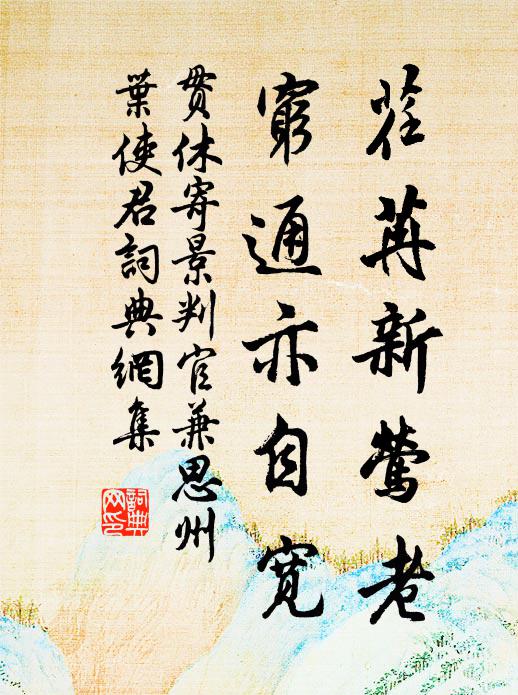 荏苒新鶯老
窮通亦自寬
貫休寄景判官兼思州
葉使君詞典網集
詞典
网印